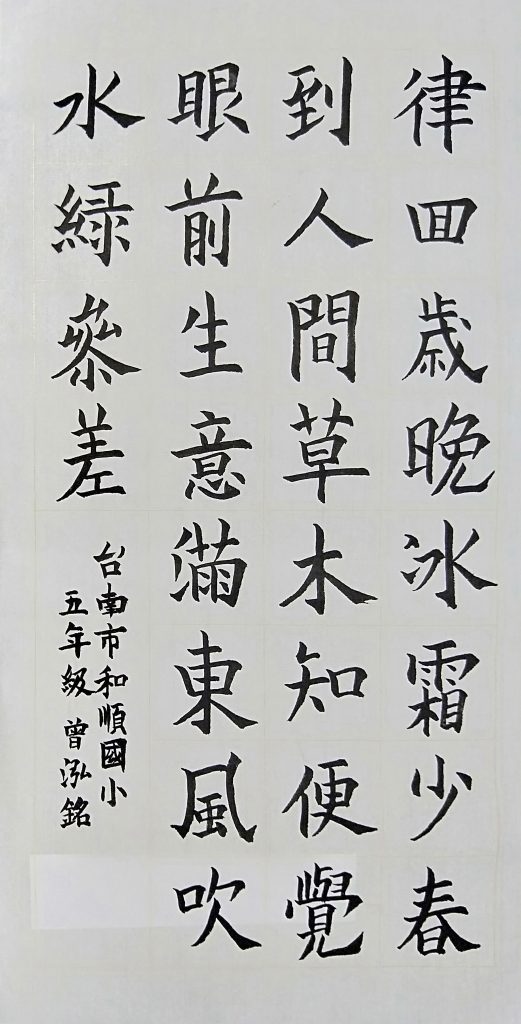 律回歲晚冰霜少春
到人間草木知便覺
眼前生意滿東風吹
水綠參差
台南市和順國小
五年級 曾泓銘